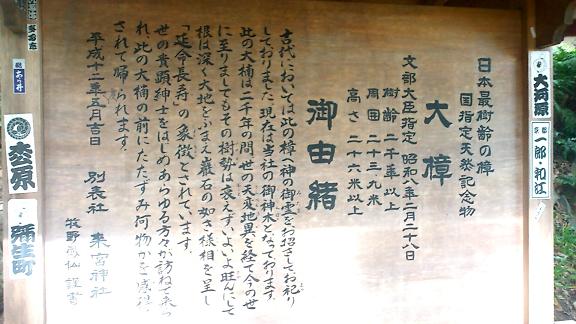 日本最樹齢の樟
国指定天然記念物
大樟
文部大臣指定 昭和八年二月二十八日
樹齢 二千年以上
周囲 二十三、九米
高さ 二十六米以上
御由緒
古代においては此の樟へ神の御霊をお招きしてお祀り
しておりました。現在は当社の御神木となっております。
此の大楠は二千年の間、世の天変地異を経て今の世
に至りましてもその樹勢は衰えずいよいよ旺んにして
根は深く大地をふまえ巌石の如き様相を呈し
「延命長寿」の象徴とされています。
世の貴顕紳士をはじめあらゆる方々が訪ねて来ら
れ、此の大楠の前にたたずみ何物かを感得
されて帰られます。
平成十二年五月吉日
別表社 来宮神社
牧野 仙 謹書
大河原
京都
一郎・和江
あり井
大宮原
弥生町